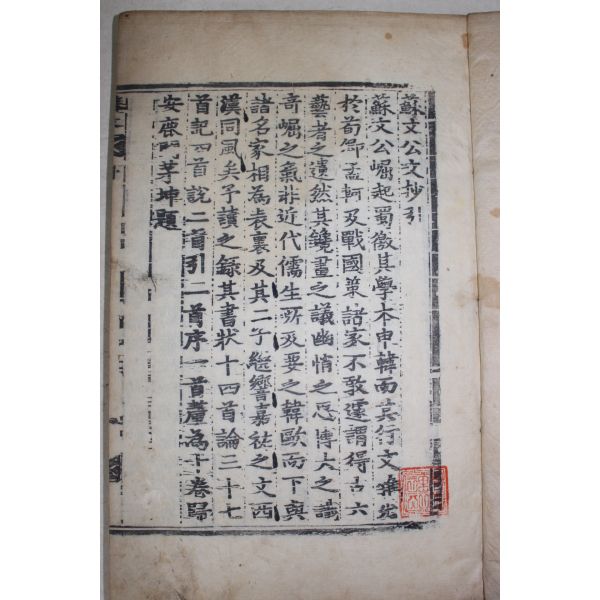 蘇文公文抄引
蘇文公崛起蜀徼其學本申韓而其行文雜出
於荀卿孟軻及戰國策諸家不敢遽謂得古六
藝者之遺然其鑱畫之議幽悄之思博大之識
奇崛之氣非近代儒生所及要之韓歐而下與
諸名家相為表裏及其二子繼響嘉祐之文西
漢同風矣予讀之錄其書狀十四首論三十七
首記四首說二首引二首序一首釐為十卷歸
安鹿門茅坤題